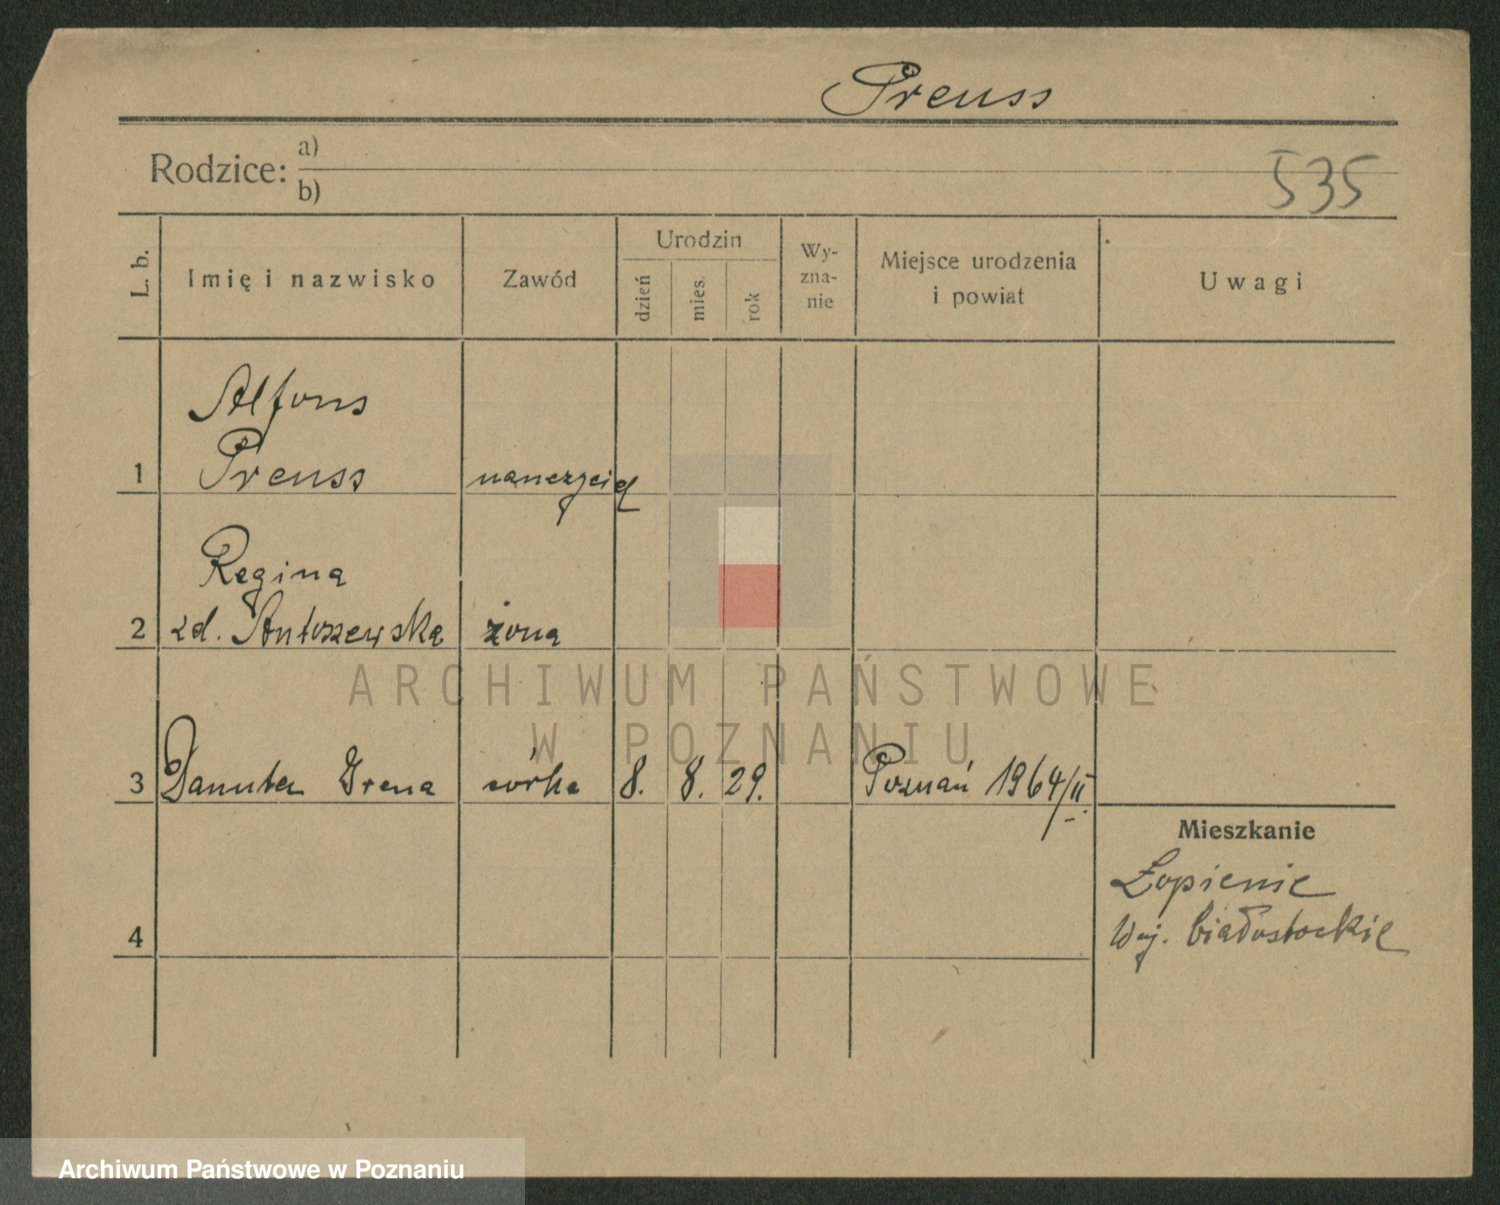 Preuss
Rodzice: a)
b)
535
L. b.
Imię i nazwisko
Zawód
Urodzin
dzień
mies.
rok
Wy-
zna-
nie
Miejsce urodzenia
i powiat
Uwagi
Alfons
1 Preuss nauczyciel
Regina
2 zd. Antoszewska żona
3 Danuta Irena córka 8. 8. 29. Poznań 1964/II.
Mieszkanie
Łopienie
Woj. białostockie
4
ARCHIWUM PAŃSTWOWE
W POZNANIU
Archiwum Państwowe w Poznaniu